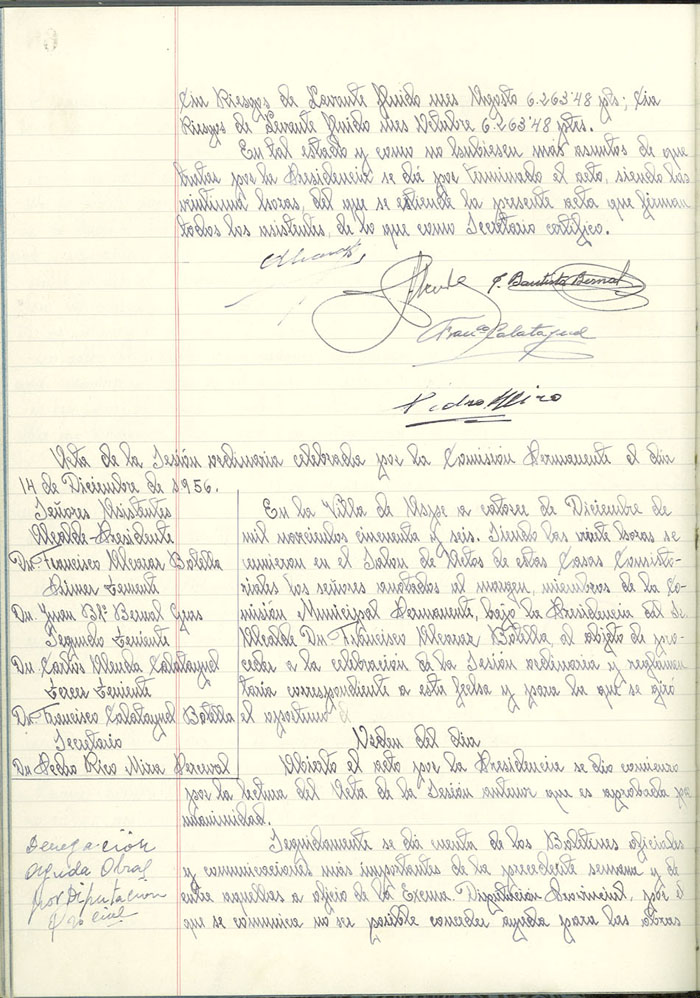 Cia Riesgos de Levante fluido mes Agosto 6.263'48 pts; Cia
Riegos de Levante fluido mes Octubre 6.263'48 ptes.
En tal estado y como no hubiesen más asuntos de que
tratar por la Presidencia se dió por terminado el acto, siendo las
veintiuna horas, del que se extiende la presente acta que firman
todos los asistentes, de lo que como Secretario certifico.
J. Bautista Bernal
Franco Calatayud
Pedro Rico
Acta de la Sesión ordinaria celebrada por la Comision Permanente el dia
14 de Diciembre de 1956.
Señores Asistentes
Alcalde-Presidente
Dn. Francisco Alcaraz Botella
Primer Teniente
Dn. Juan Bta Bernal Gras
Segundo Teniente
Dn. Carlos Alenda Calatayud
Tercer Teniente
Dn. Francisco Calatayud Botella
Secretario
Dn Pedro Rico Mira Perceval
En la Villa de Aspe a catorce de Diciembre de
mil novecientos cincuenta y seis. Siendo las veinte horas se
reunieron en el Salon de Actos de estas Casas Consisto-
riales los señores anotados al margen, miembros de la Co-
misión Municipal Permanente, bajo la Presidencia del Sr.
Alcalde Dn. Francisco Alcaraz Botella, al objeto de pro-
ceder a la celebración de la Sesión ordinaria y reglamen
taria correspondiente a esta fecha y para la que se giró
el oportuno
Orden del dia
Abierto el acto por la Presidencia se dio comienzo
por la lectura del Acta de la Sesión anterior que es aprobada por
unanimidad.
Seguidamente se dá cuenta de los Boletines oficiales
y comunicaciones más importantes de la precedente semana y de
entre aquellas a oficio de la Excma. Diputación Provincial, por el
que se comunica no ser posible conceder ayuda para las obras
Denegación
ayuda Obras
por Diputacion
Provincial